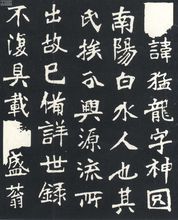 諱猛龍字神冏
南陽白水人也其
氏族分興源流所
出故已備詳世錄
不復具載盛蓊